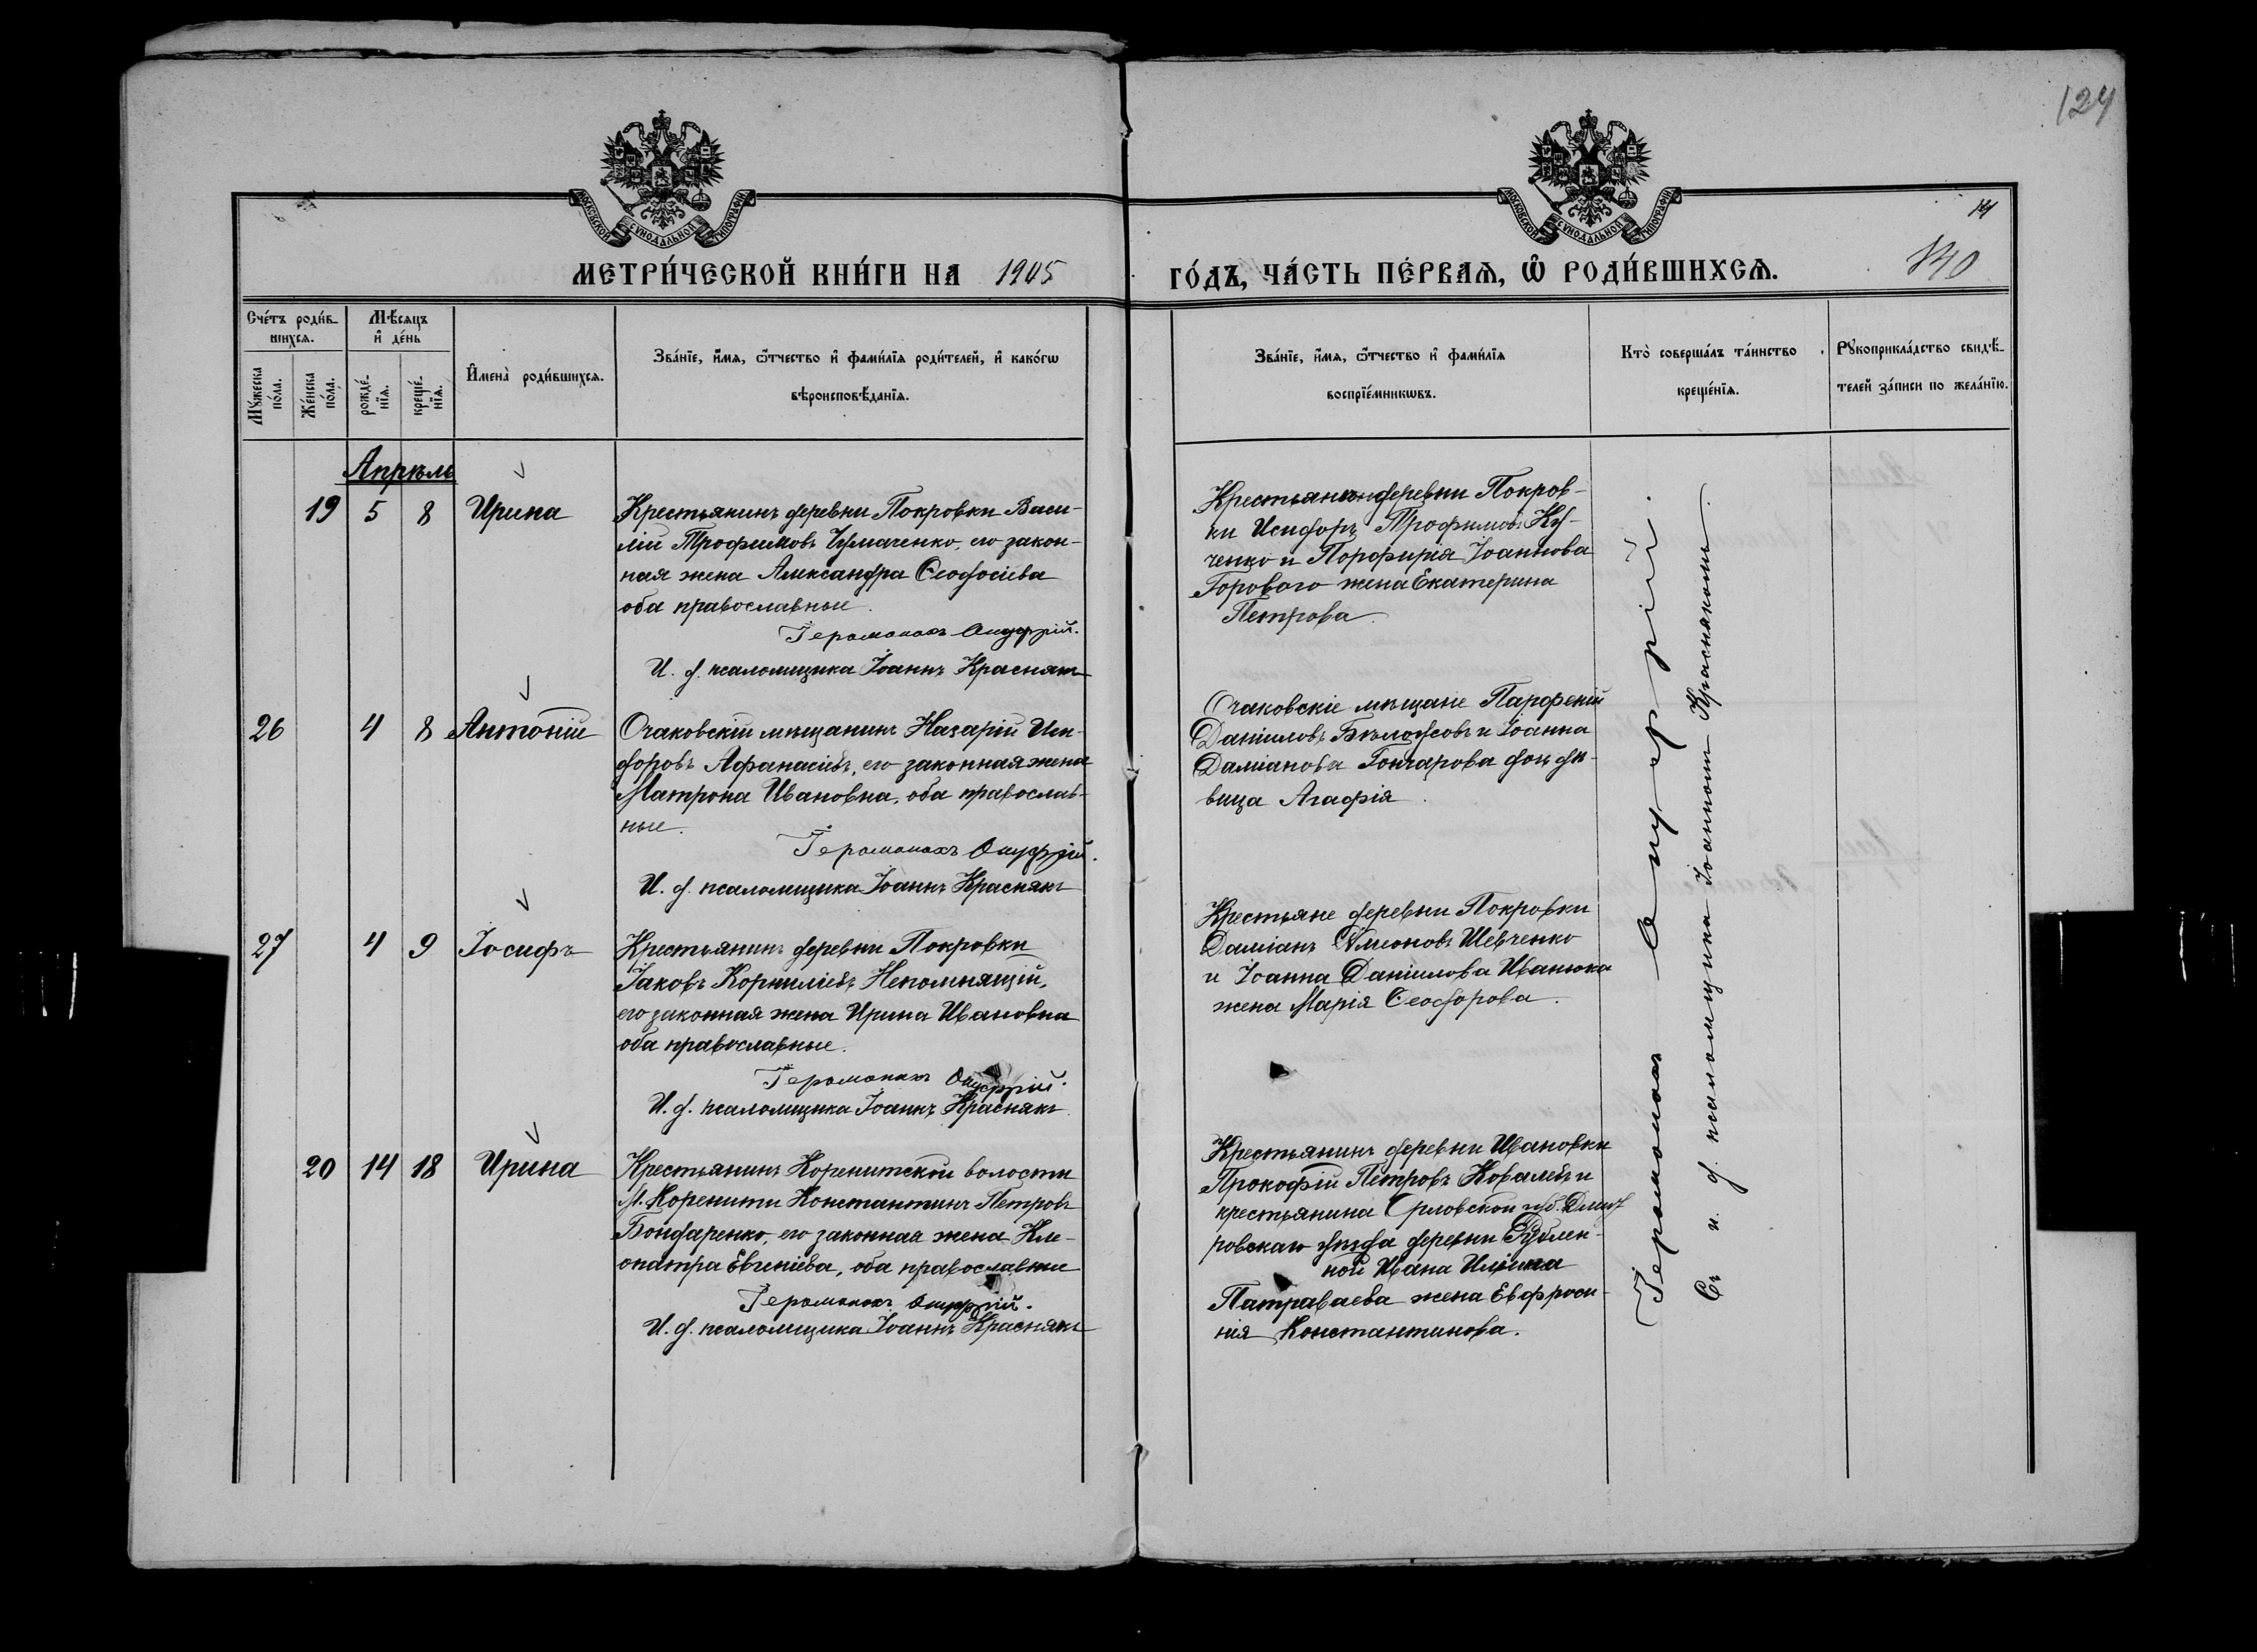 124
14
140
МОСКОВСКОЙ СѴНОДАЛЬНОЙ ТИПОГРАФІИ
МОСКОВСКОЙ СѴНОДАЛЬНОЙ ТИПОГРАФІИ
МЕТРИ́ЧЕСКОЙ КНИ́ГИ НА 1905
ГО́ДЪ, ЧА́СТЬ ПЕ́РВАЯ, Ѡ РОДИ́ВШИХСЯ.
Сче́тъ роди́в-
шихся.
Му́жеска
по́ла.
Же́нска
по́ла.
Мѣ́сяцъ
и де́нь
рожде́-
нія.
креще́-
нія.
Имена̀ роди́вшихся.
Зва́нїе, и́мя, ѻ́тчество и фами́лїя роди́телей, и како́гѡ
вѣроисповѣ́данїя.
Зва́нїе, и́мя, ѻ́тчество и фами́лїя
воспрїе́мникѡвъ.
Кто̀ соверша́лъ та́инство
креще́нїя.
Рꙋкоприкла́дство свидѣ́-
телей за́писи по жела́нїю.
Апрѣль
19 5 8 Ирина
Крестьянинъ деревни Покровки Васи-
лій Трофимовъ Чумаченко, его закон-
ная жена Александра Ѳеодосіева
оба православные.
Іеромонахъ Онуфрій.
И. д. псаломщика Іоаннъ Краснякъ
Крестьянинъ деревни Покров-
ки Исидоръ Трофимовъ Ку-
ченко и Порфирія Іоаннова
Горового жена Екатерина
Петрова.
26 4 8 Антоній
Очаковскій мѣщанинъ Назарій Иси-
доровъ Афанасіевъ, его законная жена
Матрона Ивановна, оба православ-
ные.
Іеромонахъ Онуфрій.
И. д. псаломщика Іоаннъ Краснякъ
Очаковскіе мѣщане Парфеній
Даніиловъ Бѣлоусовъ и Іоанна
Даміанова Гончарова дочь дѣ-
вица Агафія.
27 4 9 Іосифъ
Крестьянинъ деревни Покровки
Іаковъ Корниліевъ Непомнящій,
его законная жена Ирина Ивановна
оба православные.
Іеромонахъ Онуфрій.
И. д. псаломщика Іоаннъ Краснякъ
Крестьяне деревни Покровки
Даміанъ Симеоновъ Шевченко
и Іоанна Даніилова Иванюка
жена Марія Ѳеодорова.
20 14 18 Ирина
Крестьянинъ Коренитской волости
м. Коренити Константинъ Петровъ
Бондаренко, его законная жена Кле-
опатра Евгеніева, оба православные
Іеромонахъ Онуфрій.
И. д. псаломщика Іоаннъ Краснякъ
Крестьянинъ деревни Ивановки
Прокофій Петровъ Ковалевъ и
крестьянина Орловской губ. Дмит
ровскаго уѣзда деревни Рублен-
ной Ивана Ильина
Патраваева жена Евфроси-
нія Константинова.
Іеромонахъ Онуфрій.
Съ и. д. псаломщика Іоанномъ Краснякомъ.